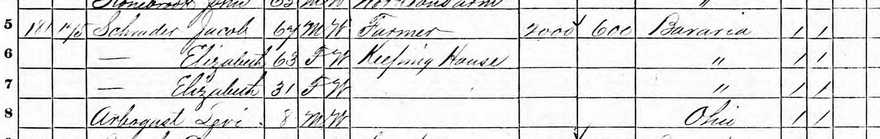 63 M W
5 181 175 Schrader Jacob 64 M W Farmer 2000 600 Bavaria / /
6 — Elizabeth 63 F W Keeping House " / /
7 — Elizabeth 31 F W " / /
8 Arbogust Levi 8 M W Ohio / /